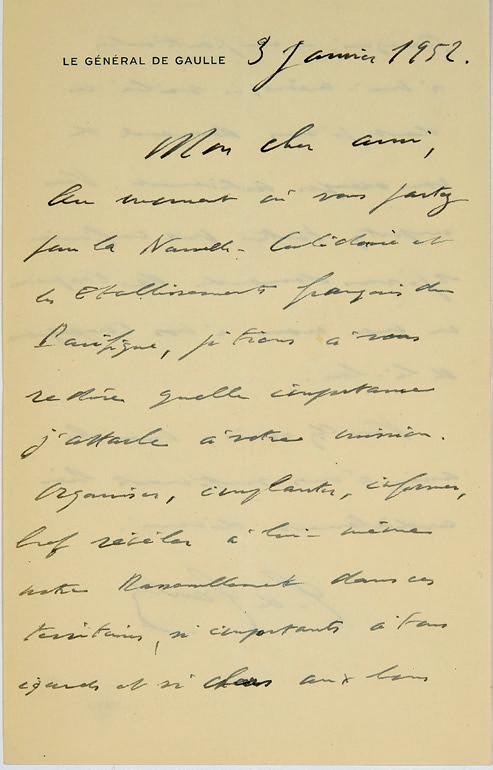 LE GÉNÉRAL DE GAULLE 3 Janvier 1952.
Mon cher ami,
Au moment où vous partez
pour la Nouvelle-Calédonie et
les Etablissements français du
Pacifique, je tiens à vous
redire quelle importance
j'attache à votre mission.
Organiser, implanter, informer,
bref révéler à lui-même
notre Rassemblement dans ces
territoires, si importants à tous
égards et si chers aux bons